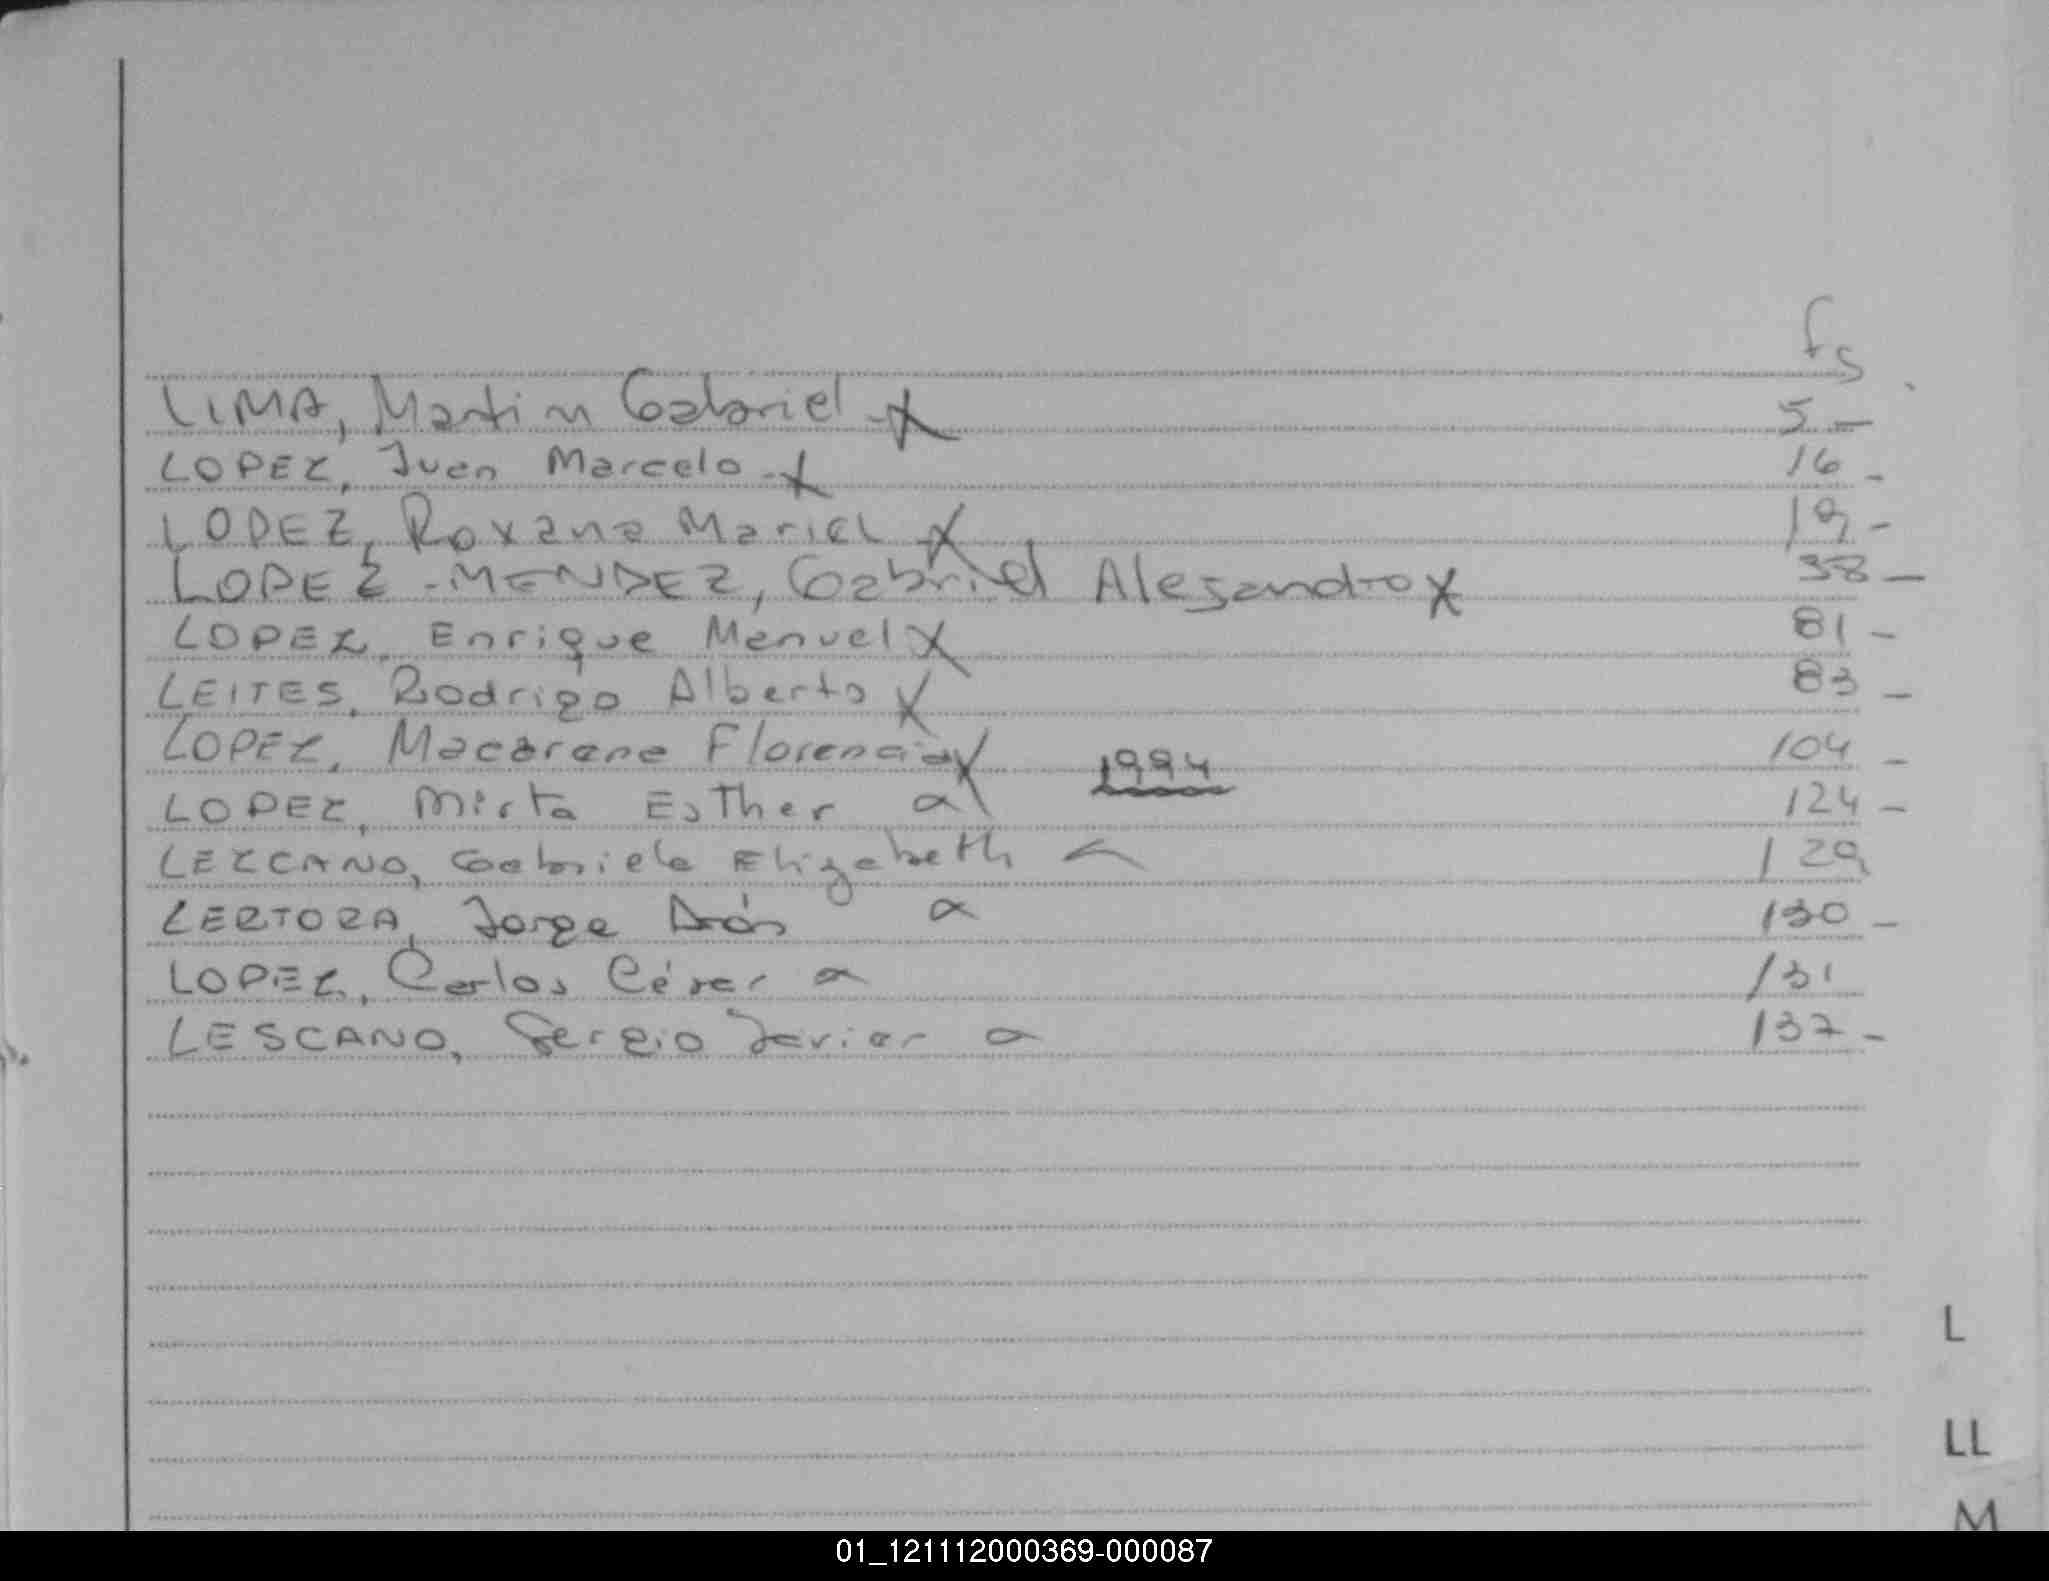 fs
LIMA, Martin Gabriel x 5 -
LOPEZ, Juan Marcelo - x 16 -
LOPEZ, Roxana Mariel x 19 -
LOPEZ - MENDEZ, Gabriel Alejandro x 38 -
LOPEZ, Enrique Manuel x 81 -
LEITES, Rodrigo Alberto x 83 -
LOPEZ, Macarena Florencia x 1994 104 -
LOPEZ, Mirta Esther 124 -
LEZCANO, Gabriela Elizabeth 129
LERTORA, Jorge 130 -
LOPEZ, Carlos César 131
LESCANO, Sergio Javier 137 -
L
LL
M
01_121112000369-000087